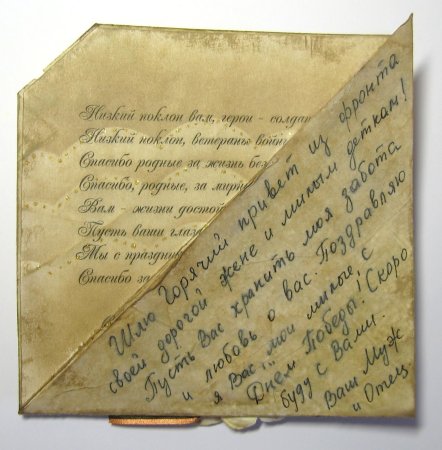 Низкий поклон вам, герои - солдат
Низкий поклон, ветераны войны
Спасибо родные за жизнь без
Спасибо, родные, за мирн
Вам - жизни достой
Пусть ваши глаз
Мы с праздни
Спасибо за
Шлю горячий привет из фронта
своей дорогой жене и милым деткам!
Пусть Вас хранить моя забота
и любовь о вас. Поздравляю
я Вас мои милые, с
Днем Победы! Скоро
буду с Вами.
Ваш Муж
и Отец.